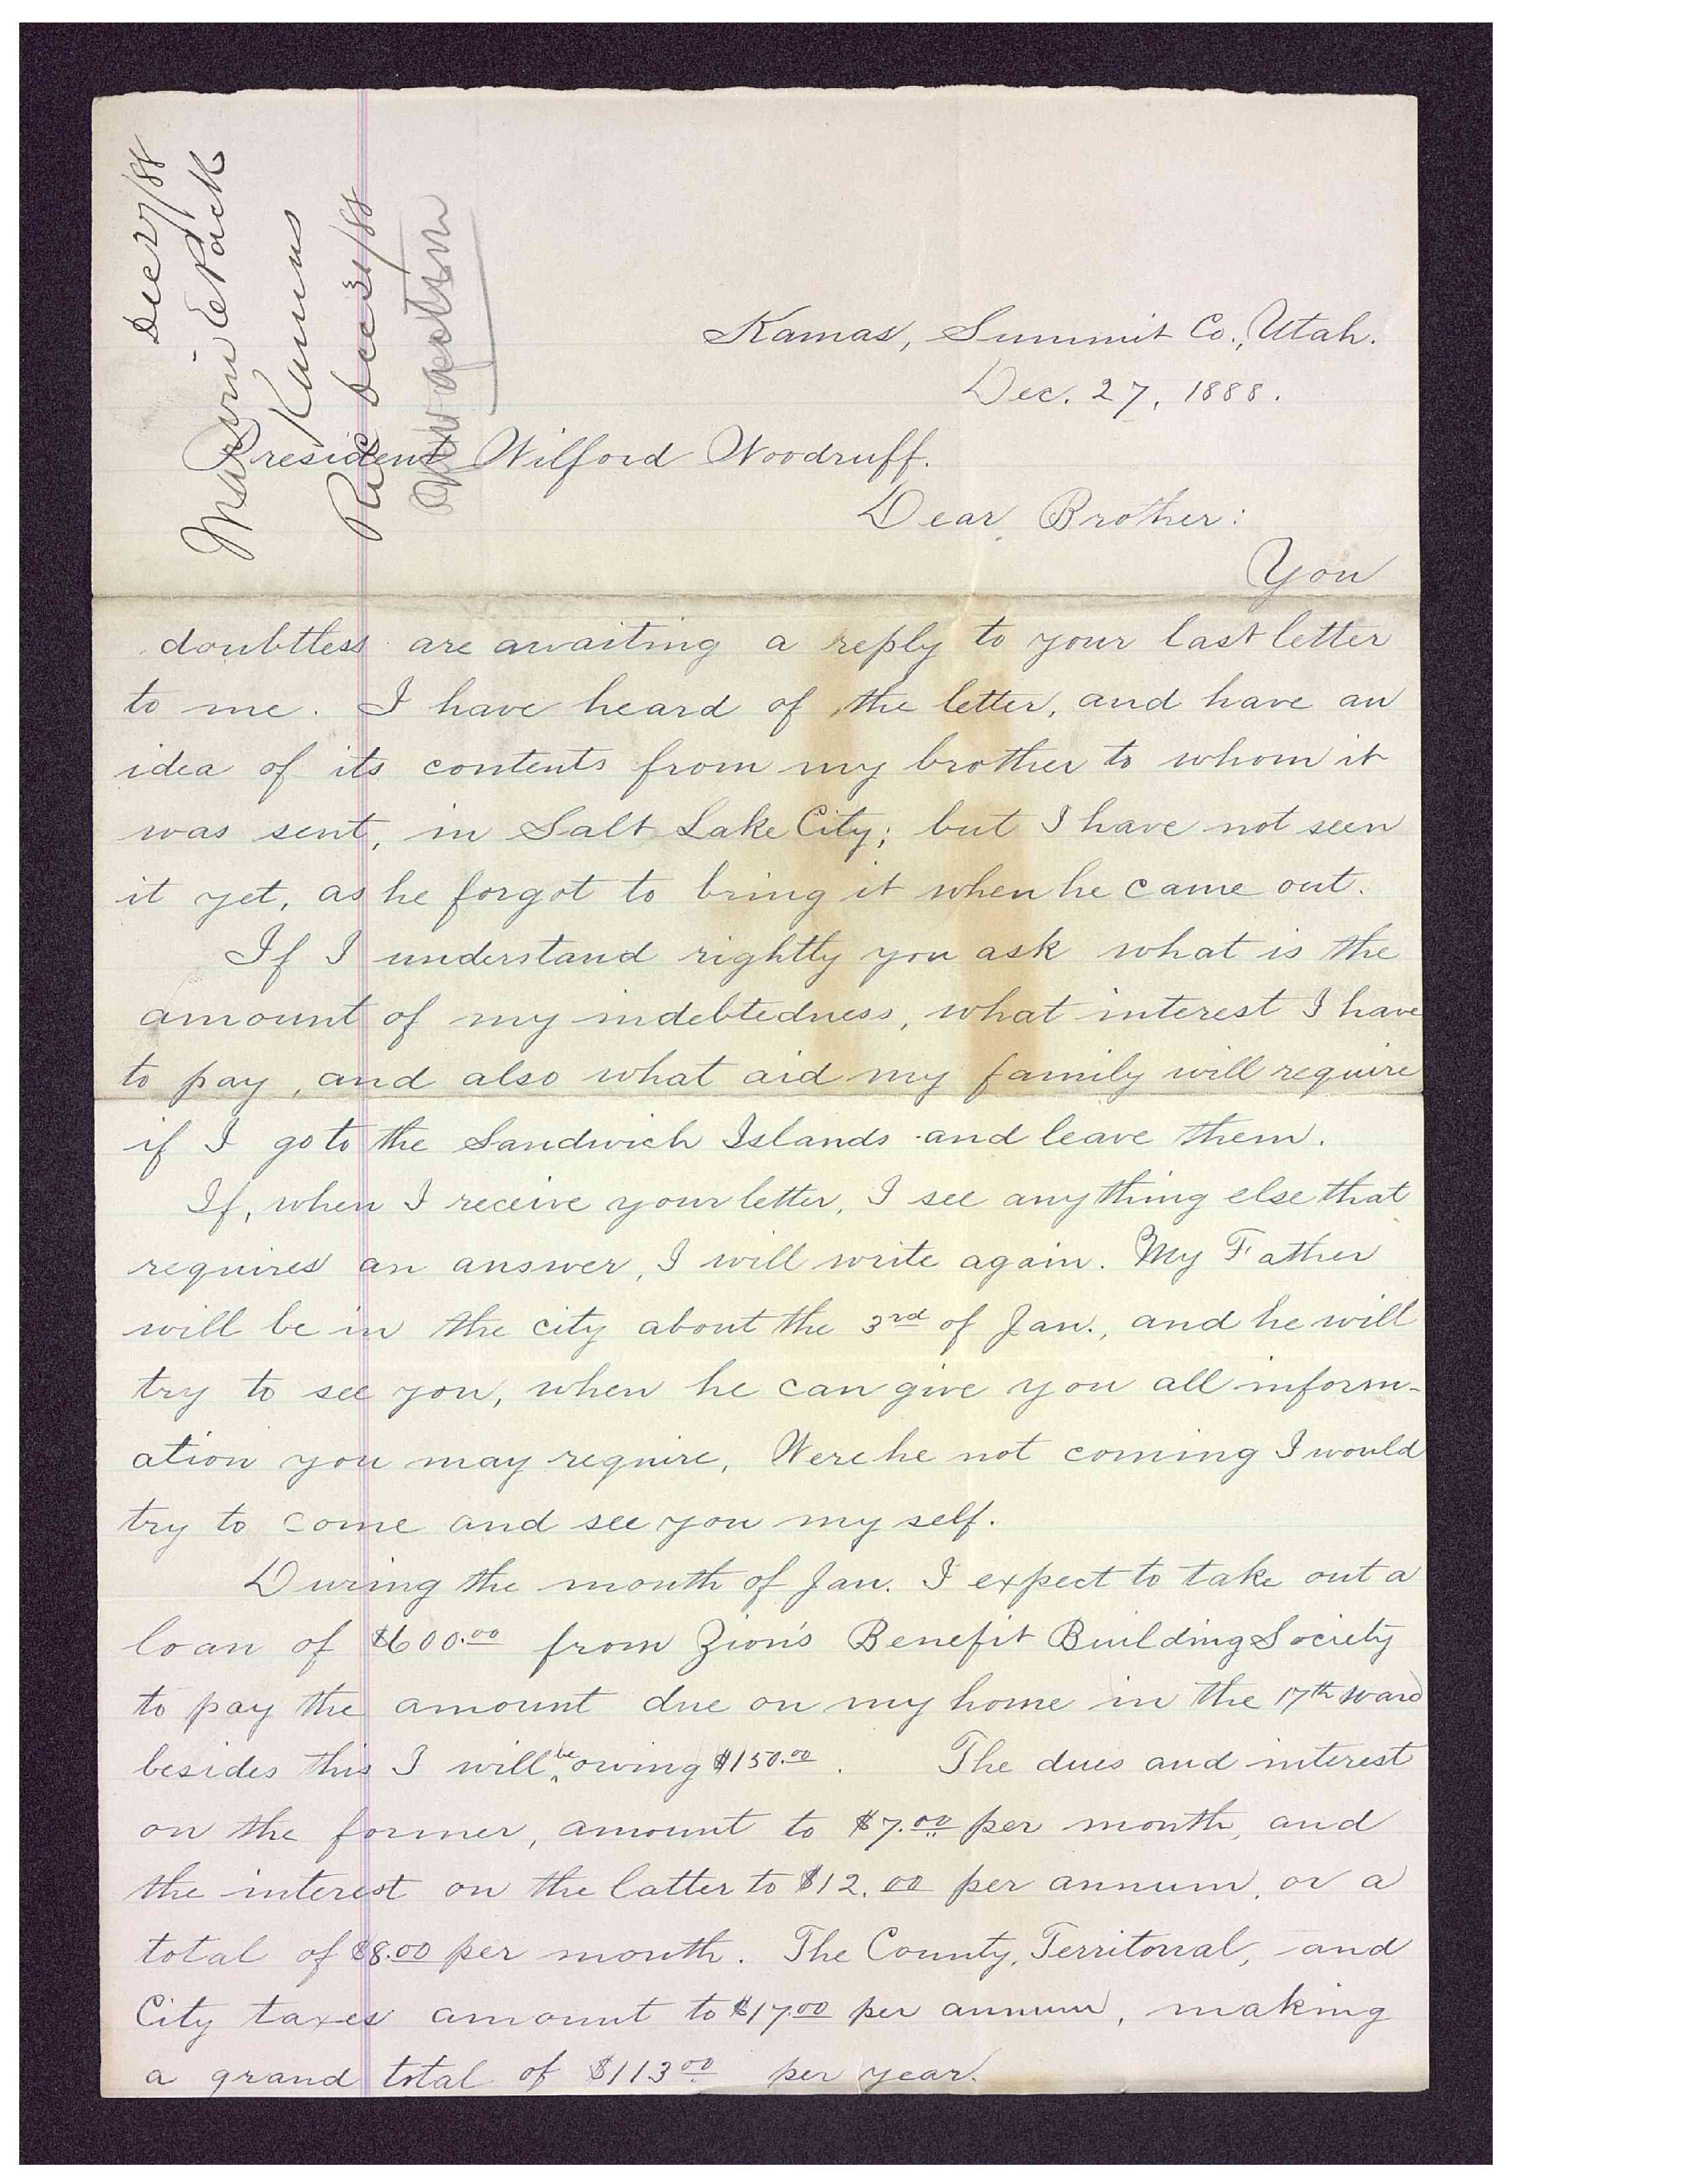 Dec 27/88
Marvin E Pack
Kamas
Rec Dec 31/88
Kamas, Summit Co., Utah.
Dec. 27, 1888.
President Wilford Woodruff.
Dear Brother:
You
doubtless are awaiting a reply to your last letter
to me. I have heard of the letter, and have an
idea of its contents from my brother to whom it
was sent, in Salt Lake City; but I have not seen
it yet, as he forgot to bring it when he came out.
If I understand rightly you ask what is the
amount of my indebtedness, what interest I have
to pay, and also what aid my family will require
if I go to the Sandwich Islands and leave them.
If, when I receive your letter, I see any thing else that
requires an answer, I will write again. My Father
will be in the city about the 3rd of Jan., and he will
try to see you, when he can give you all inform-
ation you may require, Were he not coming I would
try to come and see you my self.
During the month of Jan. I expect to take out a
loan of $600.00 from Zion's Benefit Building Society
to pay the amount due on my home in the 17th Ward
besides this I will be owing $150.00. The dues and interest
on the former, amount to $7.00 per month, and
the interest on the latter to $12.00 per annum, or a
total of $8.00 per month. The County, Territorial, and
City taxes amount to $17.00 per annum, making
a grand total of $113.00 per year.